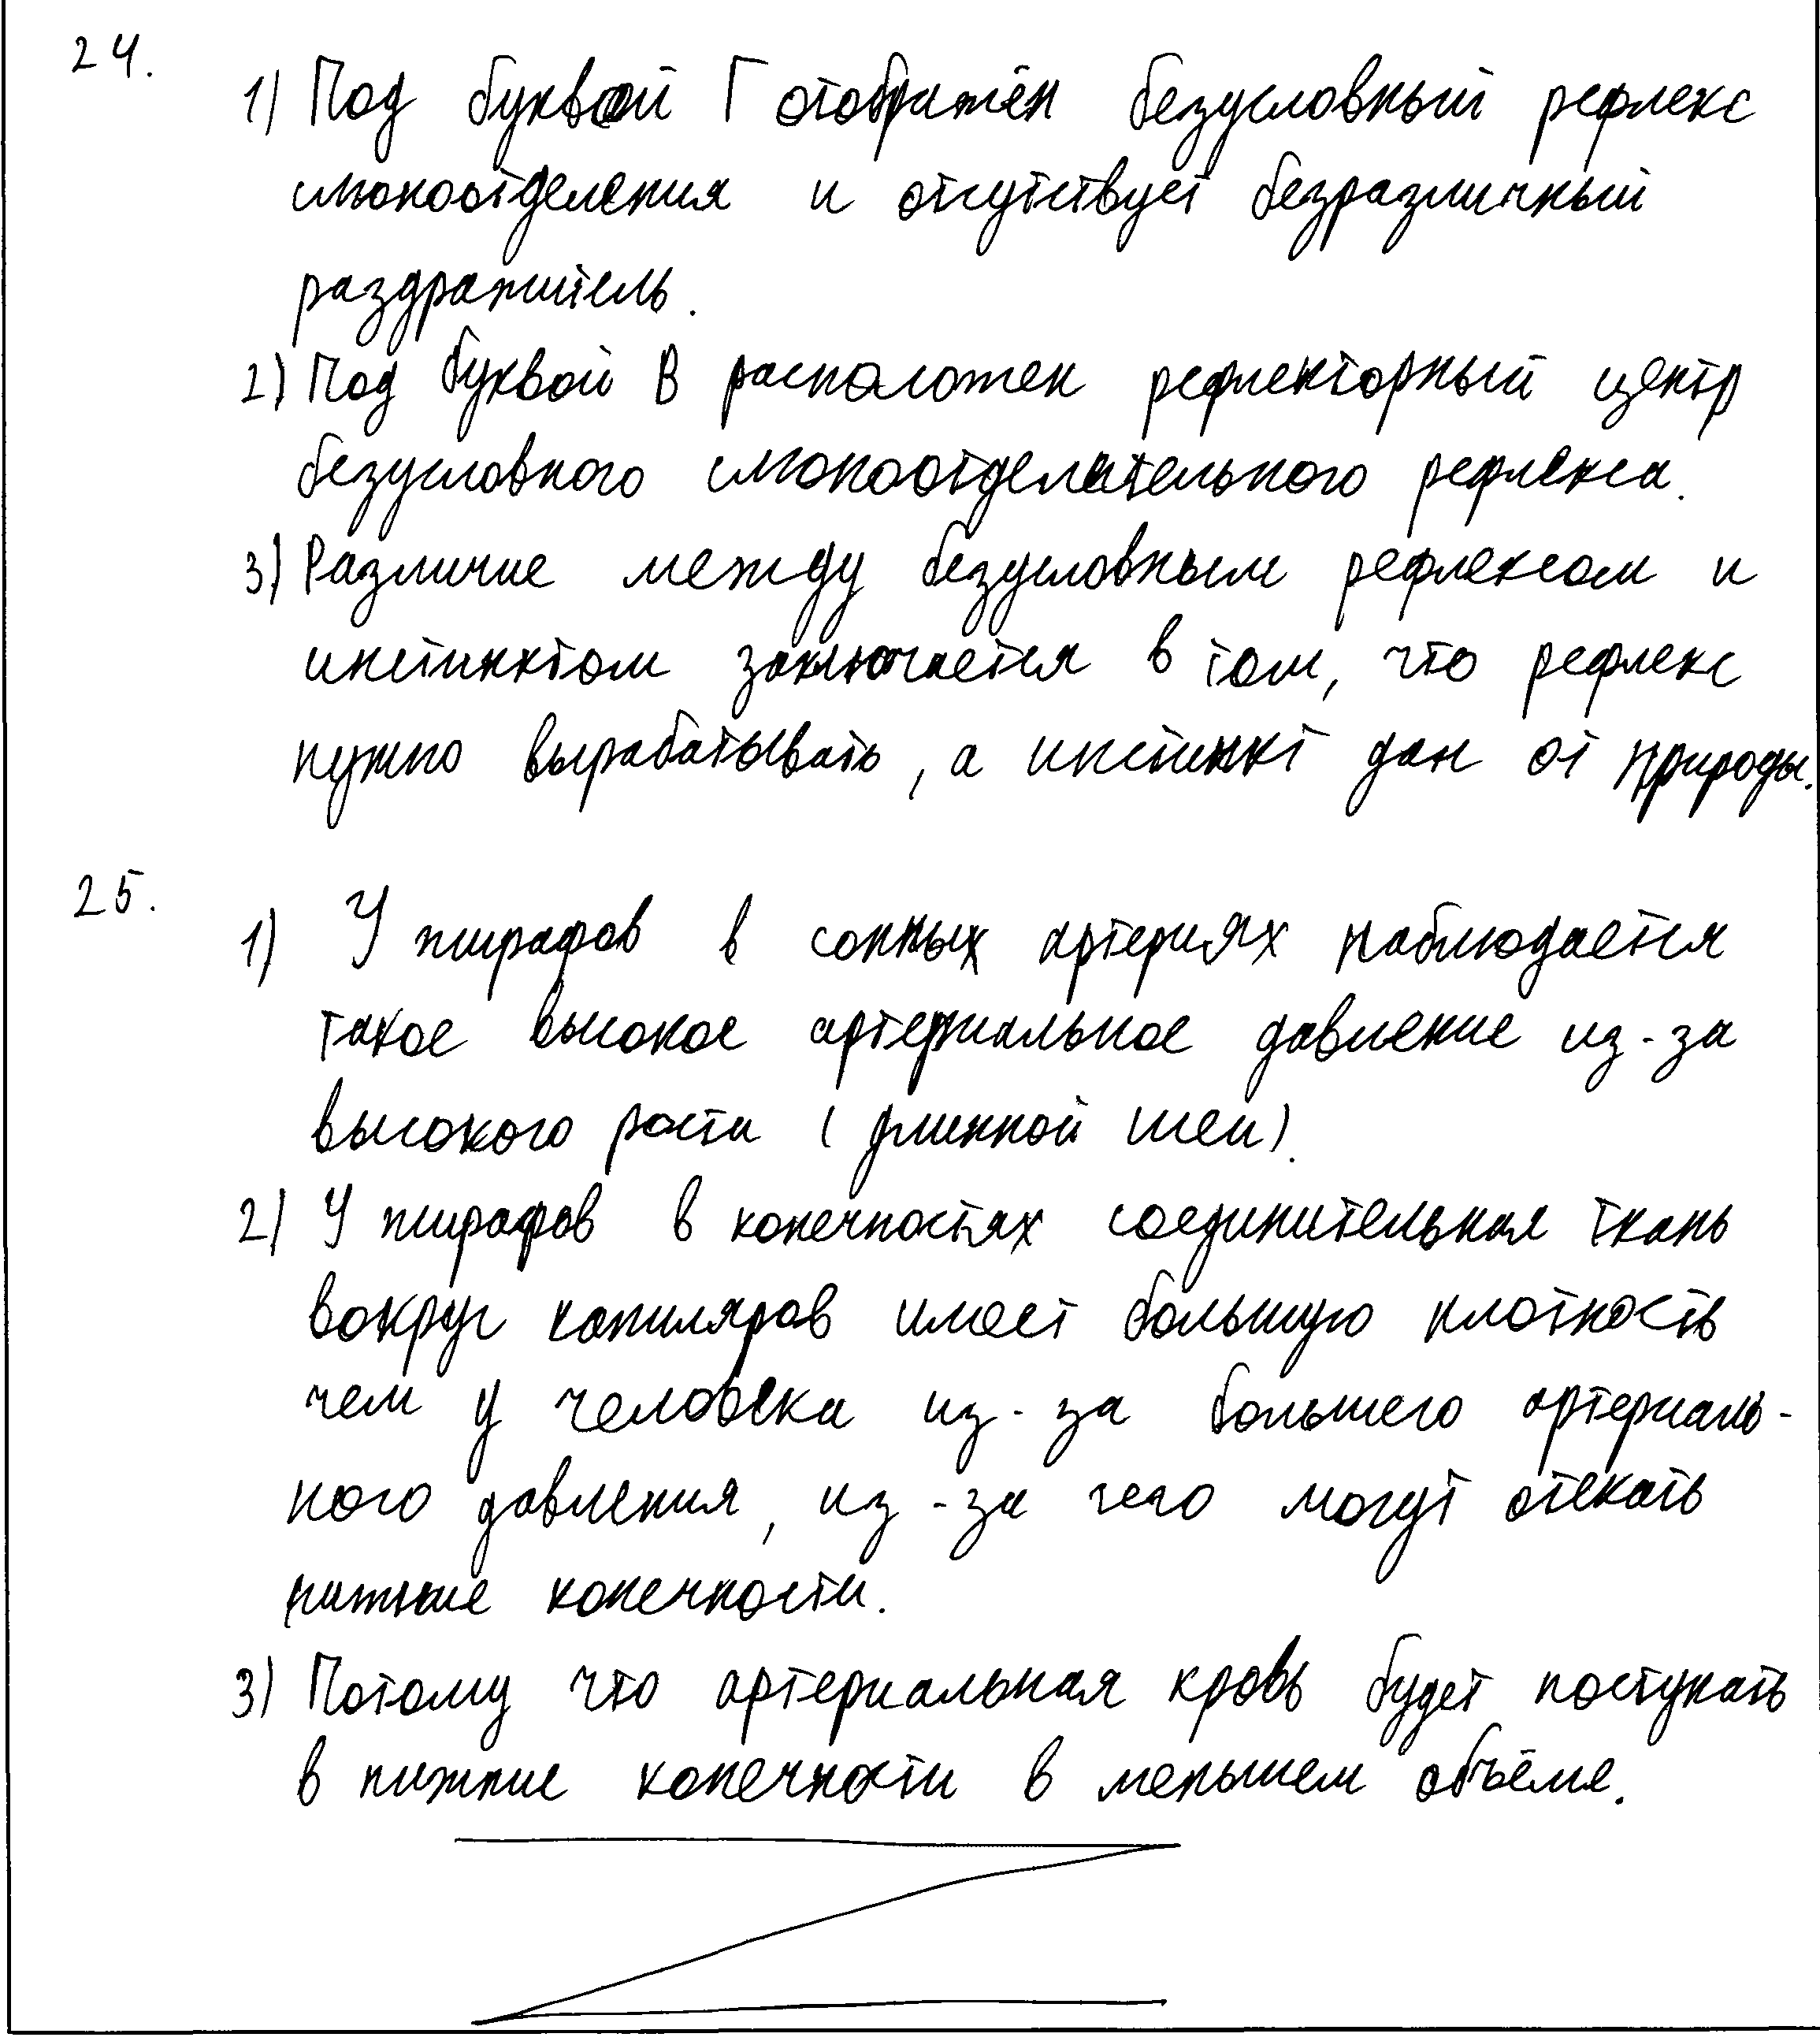 24.
1) Под буквой Г отображён безусловный рефлекс
слюноотделения и отсутствует безразличный
раздражитель.
2) Под буквой В расположен рефлекторный центр
безусловного слюноотделительного рефлекса.
3) Различие между безусловным рефлексом и
инстинктом заключается в том, что рефлекс
нужно вырабатывать, а инстинкт дан от природы.
25.
1) У жирафов в сонных артериях наблюдается
такое высокое артериальное давление из-за
высокого роста (длинной шеи).
2) У жирафов в конечностях соединительная ткань
вокруг капиляров имеет большую плотность
чем у человека из-за большего артериаль-
ного давления, из-за чего могут отекать
нижние конечности.
3) Потому что артериальная кровь будет поступать
в нижние конечности в меньшем объёме.